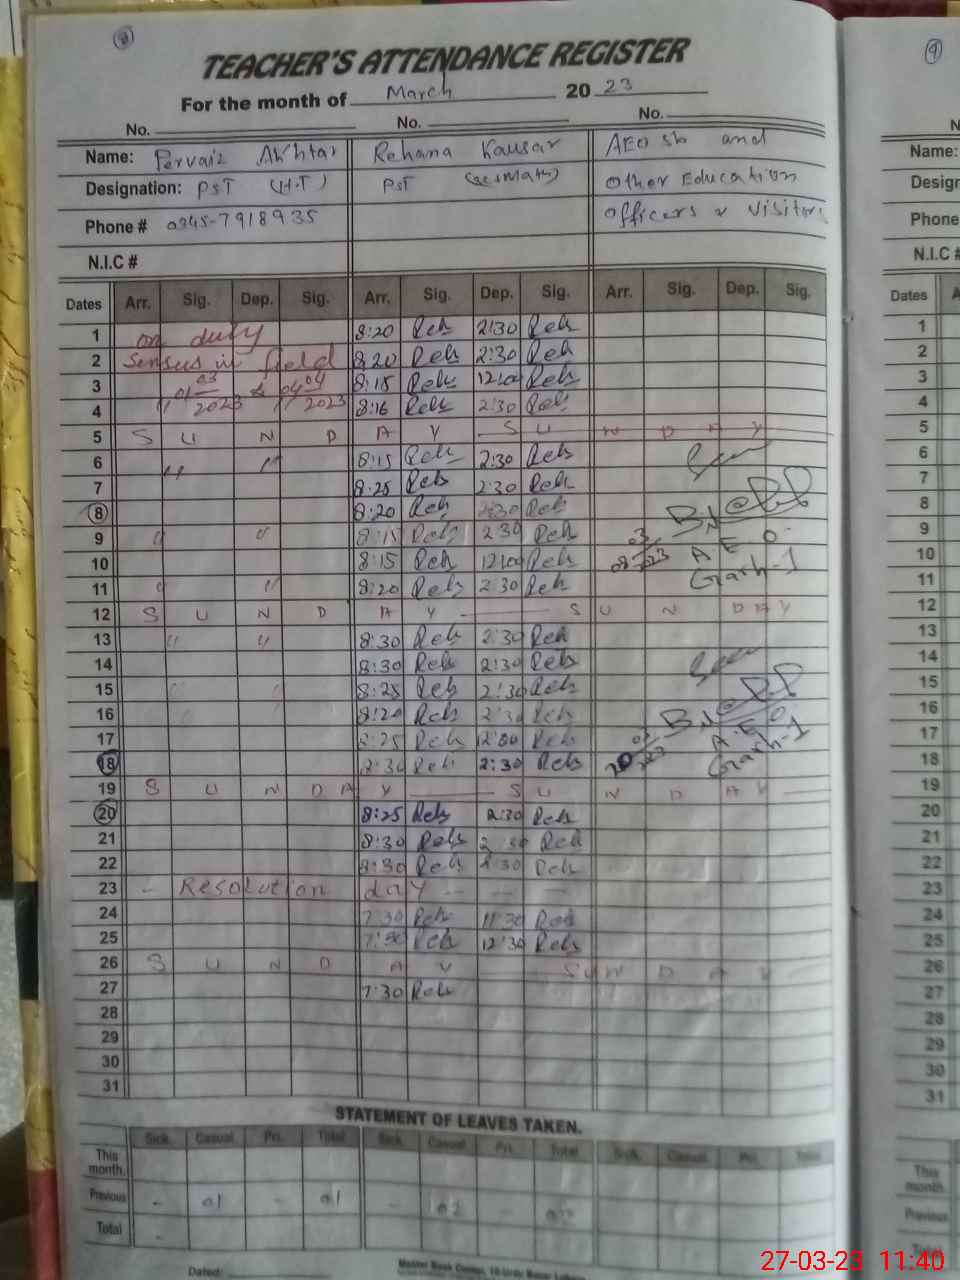 8
TEACHER'S ATTENDANCE REGISTER
For the month of March 2023
No. No. No.
Name: Pervaiz Akhtar Rehana Kausar AEO sb and
Designation: PST (H.T) PST Other Education
Phone # 0345-7918935 officers & visitors
N.I.C #
Dates Arr. Sig. Dep. Sig. Arr. Sig. Dep. Sig. Arr. Sig. Dep. Sig.
1 on duty 8:20 Reh 2:30 Reh
2 Sensus in field 8:20 Reh 2:30 Reh
3 01/03/2023 04/04/2023 8:15 Reh 12:00 Reh
4 8:16 Reh 2:30 Reh
5 S U N D A Y S U N D A Y
6 " " 8:15 Reh 2:30 Reh
7 8:25 Reh 2:30 Reh
8 8:20 Reh 2:30 Reh
9 " " 8:15 Reh 2:30 Reh 08/03/2023
10 8:15 Reh 12:00 Reh A E O
11 " " 8:20 Reh 2:30 Reh Garh-1
12 S U N D A Y S U N D A Y
13 " " 8:30 Reh 2:30 Reh
14 8:30 Reh 2:30 Reh
15 " " 8:25 Reh 2:30 Reh
16 8:20 Reh 2:30 Reh
17 8:25 Reh 12:00 Reh A E O
18 2:30 Reh 2:30 Reh Garh-1
19 S U N D A Y S U N D A Y
20 8:25 Reh 2:30 Reh
21 8:30 Reh 2:30 Reh
22 8:30 Reh 2:30 Reh
23 - Resolution day - - -
24 7:30 Reh 11:30 Reh
25 7:30 Reh 12:30 Reh
26 S U N D A Y S U N D A Y
27 7:30 Reh
28
29
30
31
STATEMENT OF LEAVES TAKEN.
Sick. Casual Pri. Total Sick. Casual Pri. Total Sick. Casual Pri. Total
This month.
Previous - 01 - 01 - 02 - 02
Total -
Dated:
9
N
Name:
Design
Phone
N.I.C #
Dates A
1
2
3
4
5
6
7
8
9
10
11
12
13
14
15
16
17
18
19
20
21
22
23
24
25
26
27
28
29
30
31
This month.
Previous
Total
27-03-23 11:40